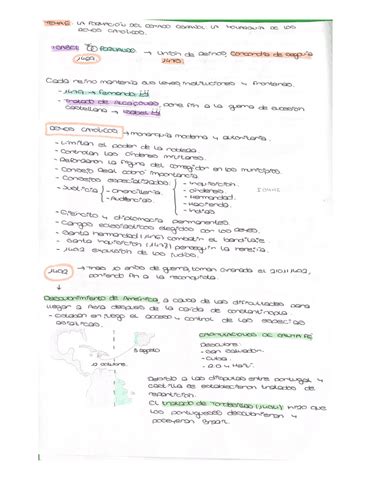 TEMA 5: LA FORMACIÓN DEL ESTADO ESPAÑOL. LA MONARQUÍA DE LOS
REYES CATÓLICOS.
ISABEL Y FERNANDO → Unión de Reinos, Concordia de Segovia
1475.
Cada reino mantenía sus leyes, instituciones y fronteras.
- 1479 → Fernando
- Tratado de Alcaçovas, pone fin a la guerra de sucesión
castellana → Isabel
REYES CATÓLICOS → monarquía moderna y autoritaria
- Limitan el poder de la nobleza.
- Controlan las Órdenes militares.
- Reforzaron la figura del corregidor en los municipios.
- Consejo Real cobró importancia
- Consejos especializados
- Inquisición.
- Órdenes
- Hermandad.
- Hacienda.
- Indias
- Justicia
- Chancillería.
- Audiencias
- Ejército y diplomacia permanentes.
- Cargos eclesiásticos elegidos por los reyes.
- Santa hermandad (1476) combatir el bandidaje.
- Santa Inquisición (1478) perseguir la herejía.
- 1492 expulsión de los judíos.
1492 → Tras 10 años de guerra, toman Granada el 2/01/1492,
poniendo fin a la reconquista.
Descubrimiento de América, a causa de las dificultades para
llegar a Asia después de la caída de Constantinopla
- Estaban en juego el acceso y control de las especias
asiáticas.
CAPITULACIONES DE SANTA FE
Descubre:
- San Salvador.
- Cuba
3 agosto
12 octubre
Debido a las disputas entre Portugal y
Castilla se establecieron tratados de
repartición.
El tratado de Tordesillas (1494) hizo que
los portugueses descubrieran y
poseyeran Brasil.